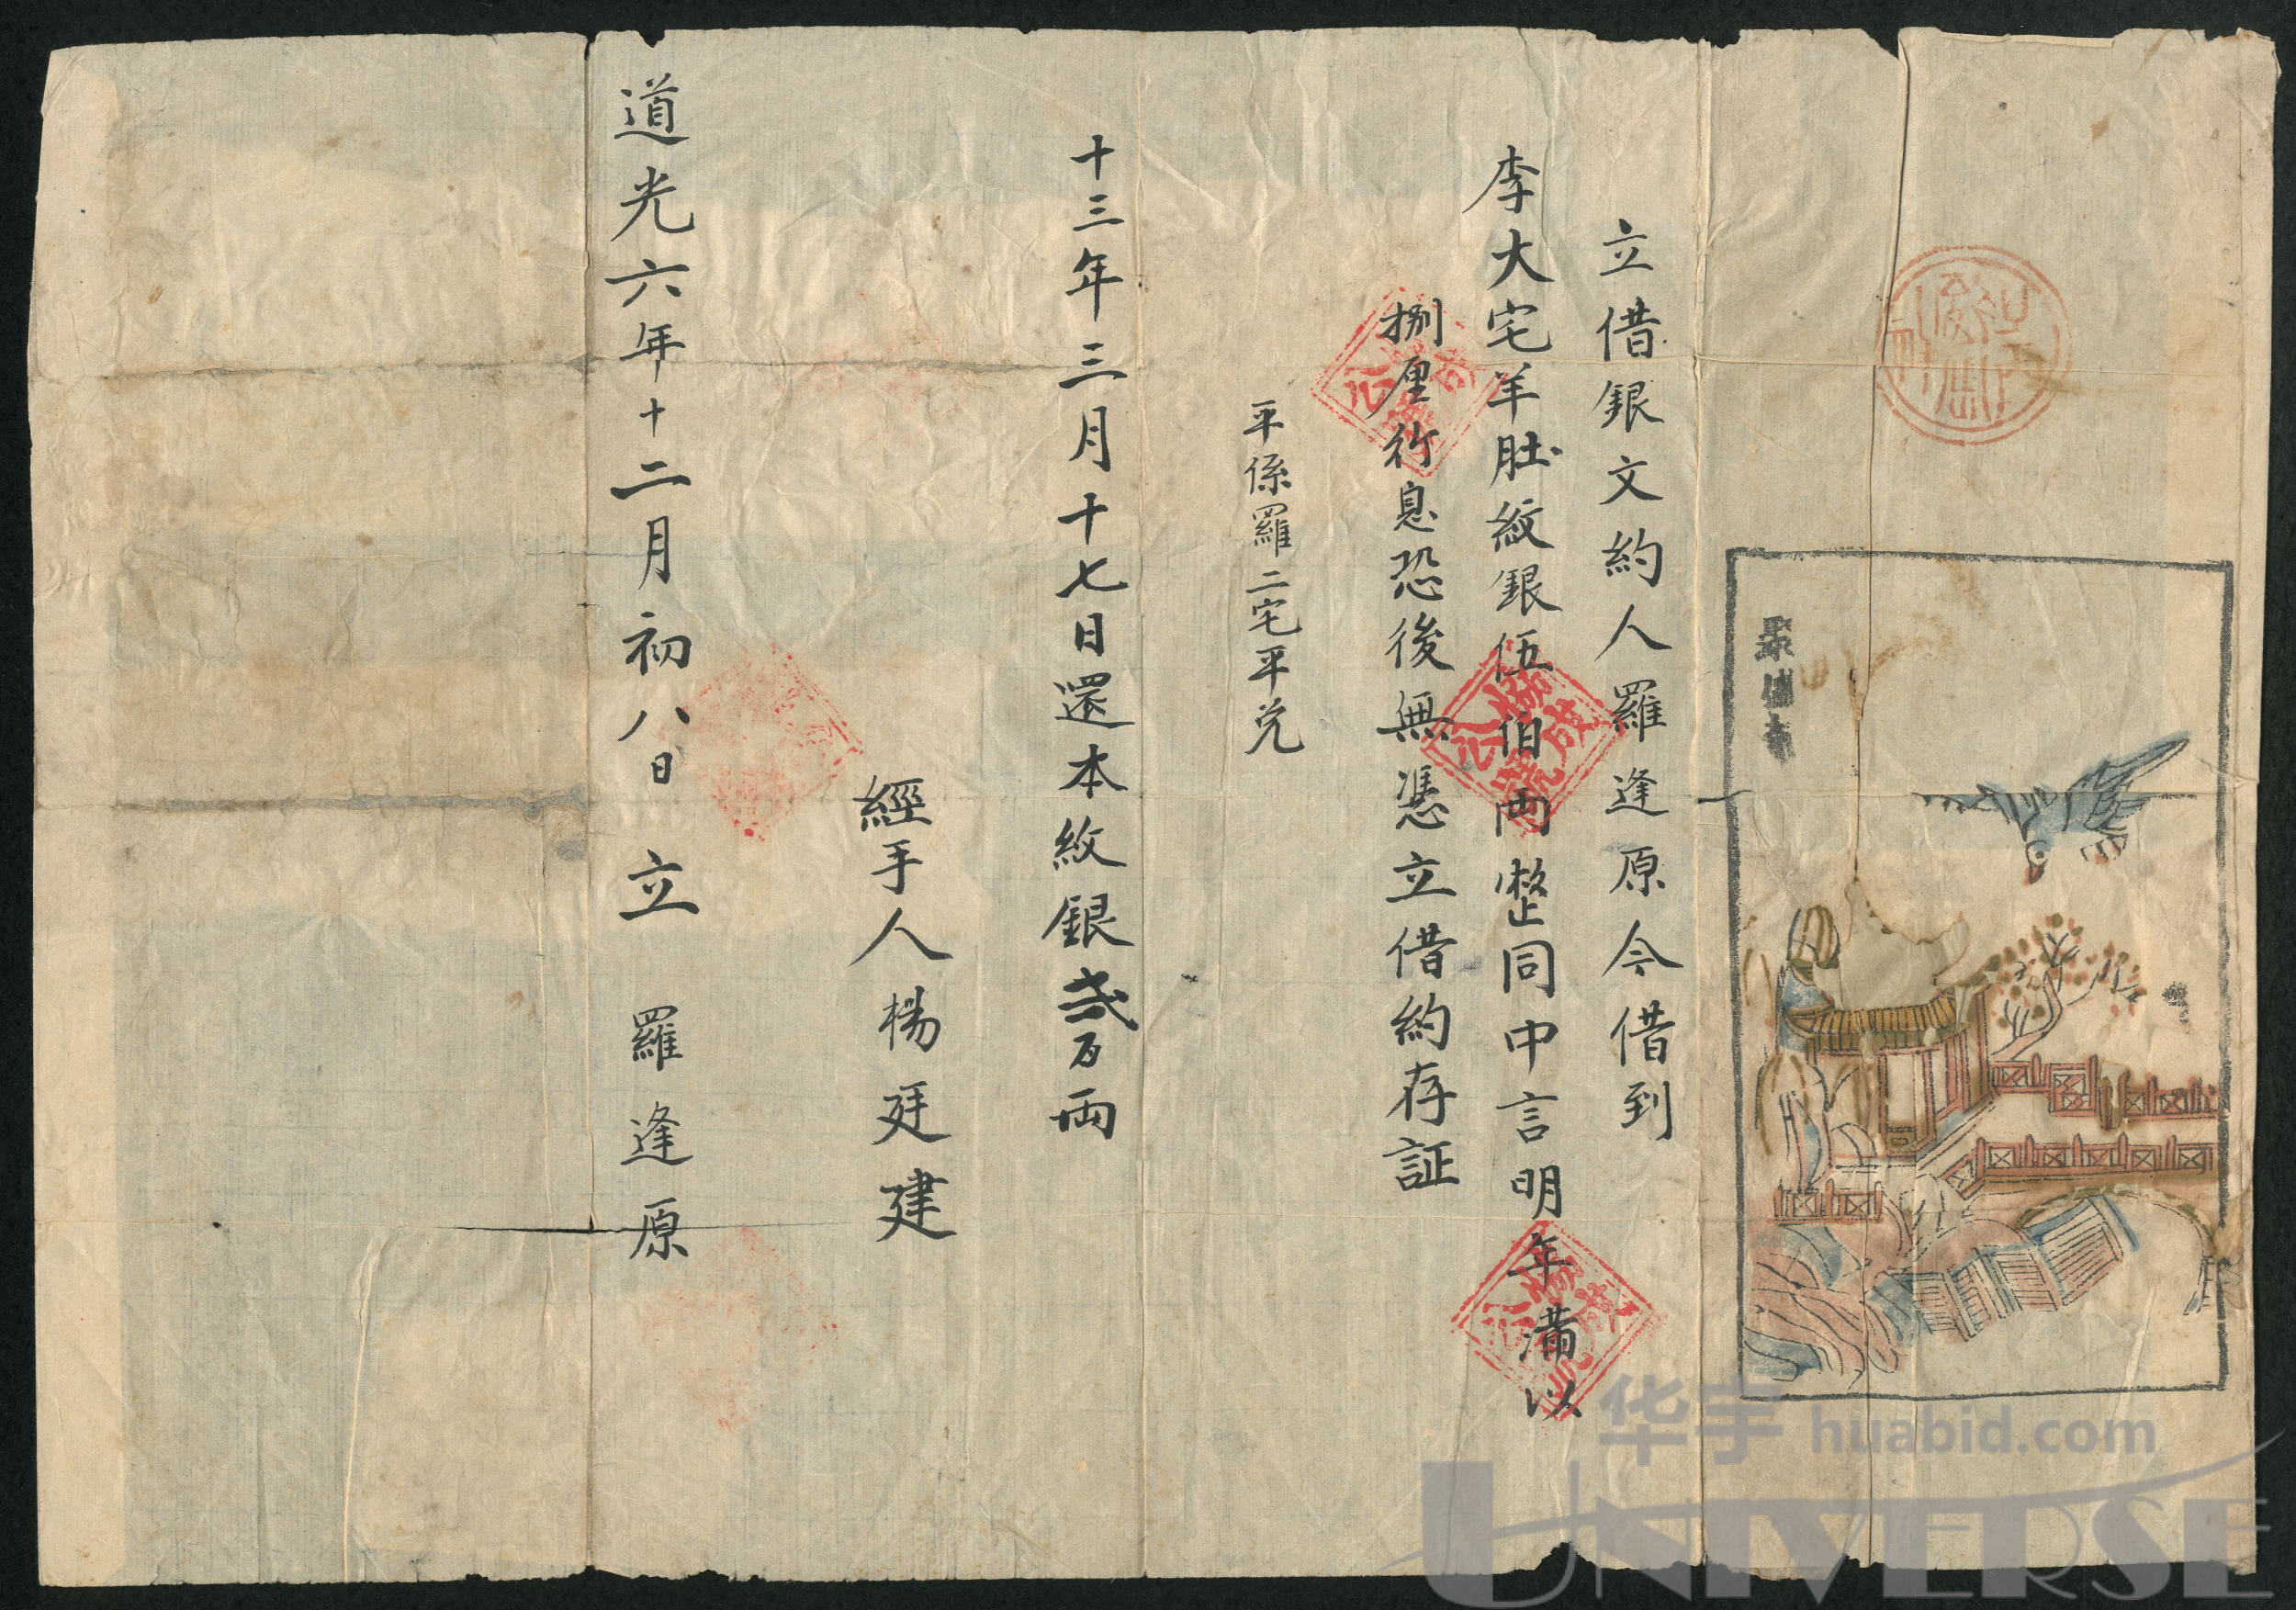 立借銀文約人羅逢原今借到
李大宅羊肚紋銀伍伯両整同中言明年滿以
捌厘行息恐後無憑立借約存証
平係羅二宅平兑
十三年三月十七日還本紋銀弍百両
經手人楊廷建
道光六年十二月初八日 立 羅逢原
华宇 huabid.com
UNIVERSE